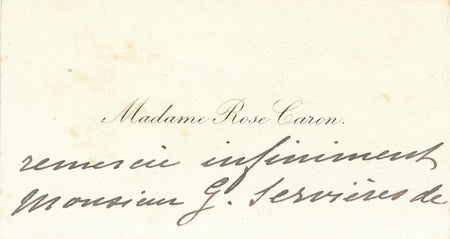 Madame Rose Caron.
remercie infiniment
Monsieur G. Servières de